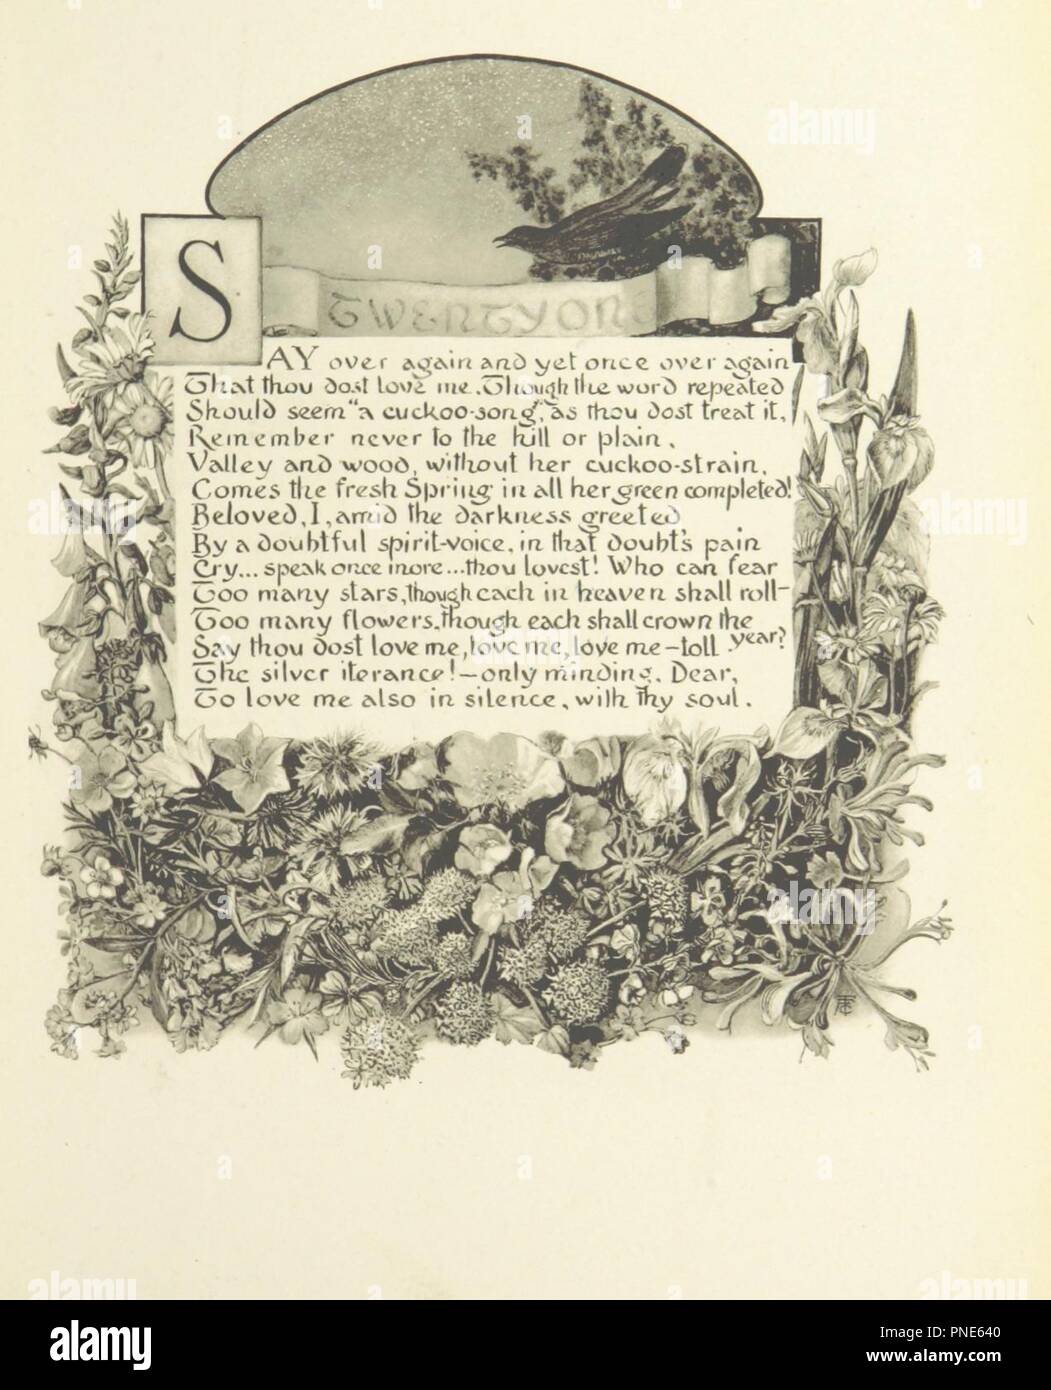 TWENTY ONE
SAY over again and yet once over again
That thou dost love me. Though the word repeated
Should seem "a cuckoo-song", as thou dost treat it,
Remember never to the hill or plain,
Valley and wood, without her cuckoo-strain,
Comes the fresh Spring in all her green completed!
Beloved, I, amid the darkness greeted
By a doubtful spirit-voice, in that doubt's pain
Cry... speak once more... thou lovest! Who can fear
Too many stars, though each in heaven shall roll—
Too many flowers, though each shall crown the year?
Say thou dost love me, love me, love me—toll
The silver iterance!—only minding, Dear,
To love me also in silence, with thy soul.
alamy
Image ID: PNE640
www.alamy.com